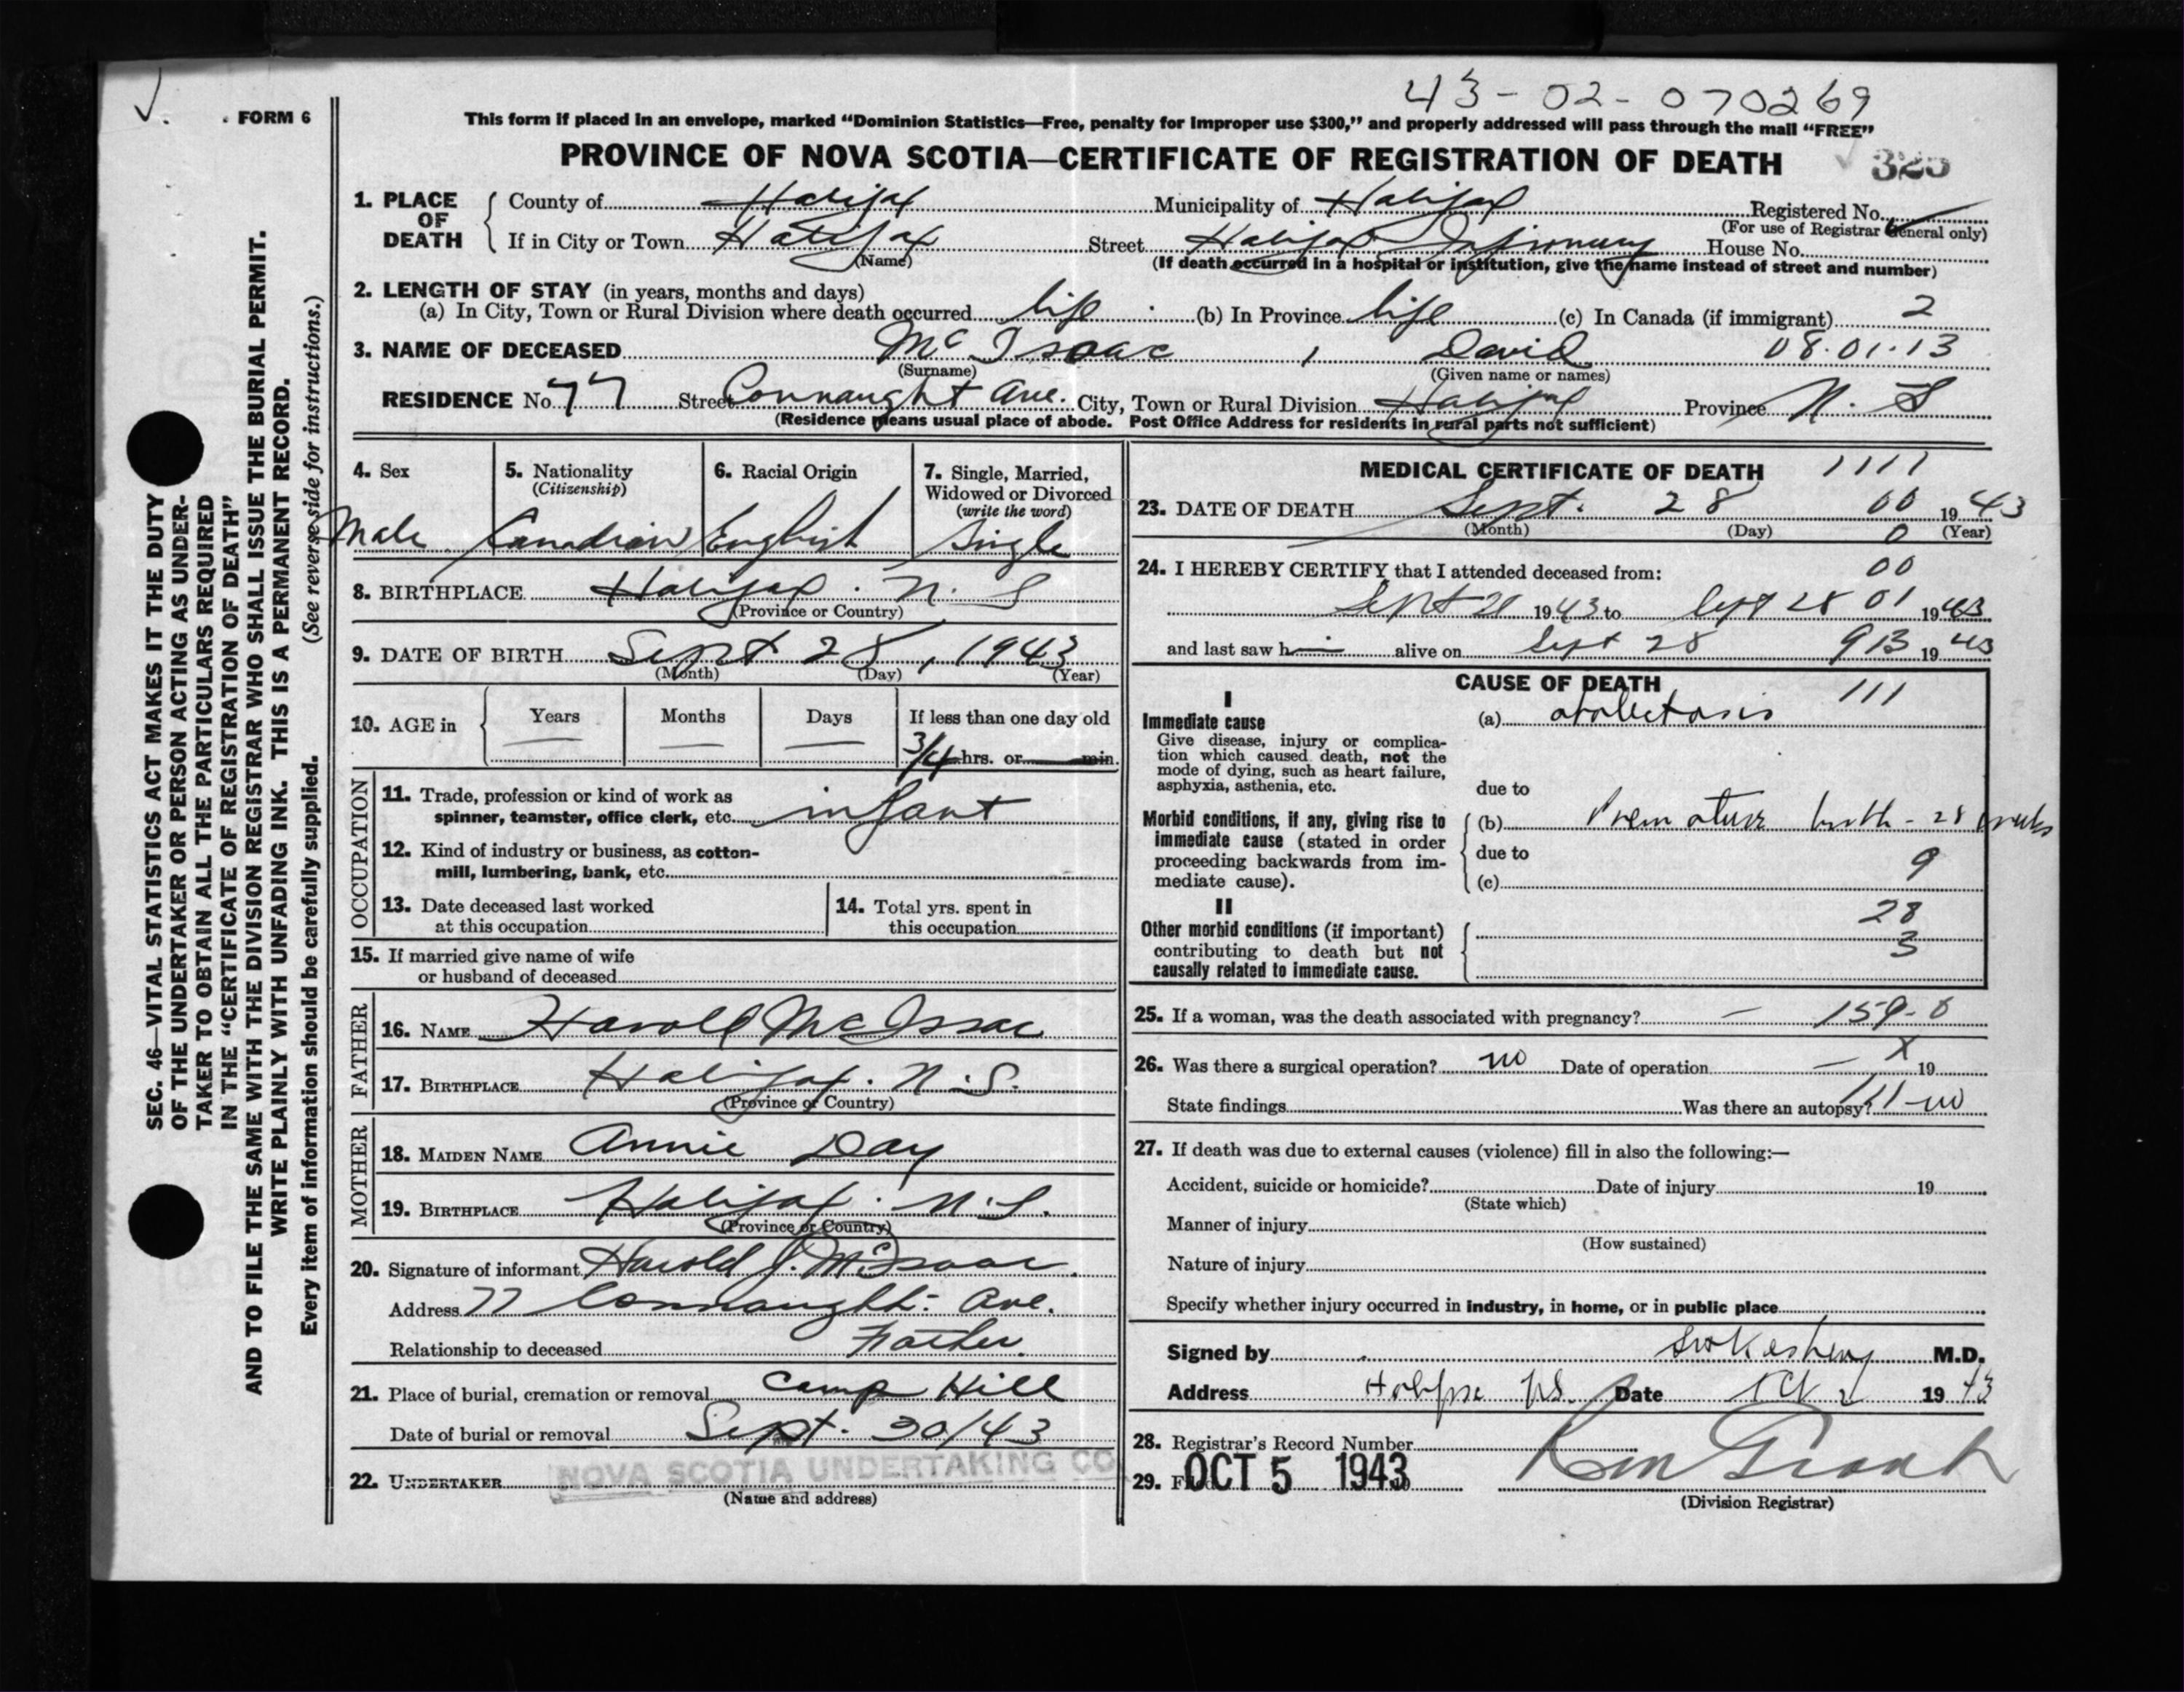 43-02-070269
FORM 6
This form if placed in an envelope, marked “Dominion Statistics—Free, penalty for improper use $300,” and properly addressed will pass through the mail “FREE”
PROVINCE OF NOVA SCOTIA—CERTIFICATE OF REGISTRATION OF DEATH
325
SEC. 46—VITAL STATISTICS ACT MAKES IT THE DUTY
OF THE UNDERTAKER OR PERSON ACTING AS UNDER-
TAKER TO OBTAIN ALL THE PARTICULARS REQUIRED
IN THE “CERTIFICATE OF REGISTRATION OF DEATH”
AND TO FILE THE SAME WITH THE DIVISION REGISTRAR WHO SHALL ISSUE THE BURIAL PERMIT.
WRITE PLAINLY WITH UNFADING INK. THIS IS A PERMANENT RECORD.
Every item of information should be carefully supplied. (See reverse side for instructions.)
1. PLACE OF DEATH
County of Halifax Municipality of Halifax Registered No.
(For use of Registrar General only)
If in City or Town Halifax Street Halifax Infirmary House No.
(Name) (If death occurred in a hospital or institution, give the name instead of street and number)
2. LENGTH OF STAY (in years, months and days)
(a) In City, Town or Rural Division where death occurred life (b) In Province life (c) In Canada (if immigrant) 2
3. NAME OF DECEASED McIsaac, David 08.01.13
(Surname) (Given name or names)
RESIDENCE No. 77 Street Connaught Ave. City, Town or Rural Division Halifax Province N.S
(Residence means usual place of abode. Post Office Address for residents in rural parts not sufficient)
4. Sex Male
5. Nationality (Citizenship) Canadian
6. Racial Origin English
7. Single, Married, Widowed or Divorced (write the word) Single
8. BIRTHPLACE Halifax. N. S
(Province or Country)
9. DATE OF BIRTH Sept 28, 1943
(Month) (Day) (Year)
10. AGE in Years — Months — Days — If less than one day old
3/4 hrs. or min.
OCCUPATION
11. Trade, profession or kind of work as
spinner, teamster, office clerk, etc. infant
12. Kind of industry or business, as cotton-
mill, lumbering, bank, etc.
13. Date deceased last worked
at this occupation
14. Total yrs. spent in
this occupation
15. If married give name of wife
or husband of deceased
FATHER
16. NAME Harold McIssac
17. BIRTHPLACE Halifax. N.S.
(Province or Country)
MOTHER
18. MAIDEN NAME Annie Day
19. BIRTHPLACE Halifax. N.S.
(Province or Country)
20. Signature of informant Harold J. McIsaac.
Address 77 Connaught Ave.
Relationship to deceased Father.
21. Place of burial, cremation or removal Camp Hill
Date of burial or removal Sept. 30/43
22. UNDERTAKER NOVA SCOTIA UNDERTAKING CO
(Name and address)
MEDICAL CERTIFICATE OF DEATH 1111
23. DATE OF DEATH Sept. 28 00 1943
(Month) (Day) 0 (Year)
24. I HEREBY CERTIFY that I attended deceased from: 00
Sept 1943 to Sept 28 01 1943
and last saw him alive on Sept 28 913 1943
CAUSE OF DEATH
I
Immediate cause
(a) atelectasis 111
Give disease, injury or complica-
tion which caused death, not the
mode of dying, such as heart failure,
asphyxia, asthenia, etc.
due to
Morbid conditions, if any, giving rise to
immediate cause (stated in order
proceeding backwards from im-
mediate cause).
(b) Premature birth - 28 weeks
due to 9
(c)
II 28
Other morbid conditions (if important)
contributing to death but not
causally related to immediate cause.
3
25. If a woman, was the death associated with pregnancy? — 159-0
26. Was there a surgical operation? no Date of operation — X 19
State findings Was there an autopsy? 111 no
27. If death was due to external causes (violence) fill in also the following:—
Accident, suicide or homicide? Date of injury 19
(State which)
Manner of injury
(How sustained)
Nature of injury
Specify whether injury occurred in industry, in home, or in public place
Signed by M.D.
Address Halifax N.S. Date Oct 2 1943
28. Registrar's Record Number
29. Filed OCT 5 1943
(Division Registrar)